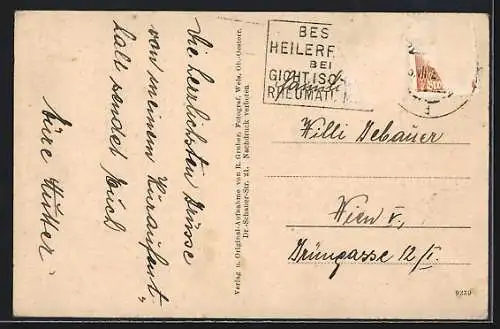 Die herrlichsten Grüsse
von meinem Kuraufent-
halt sendet Euch
Eure Mutter
Verlag u. Original-Aufnahme von R. Gruber, Fotograf, Wels, Ob.-Oesterr.
Dr.-Schauer-Str. 21. Nachdruck verboten
BES
HEILERF
BEI
GICHT, ISC
RHEUMATI
Familie
Willi Debauer
Wien V,
Grüngasse 12/I.
9239